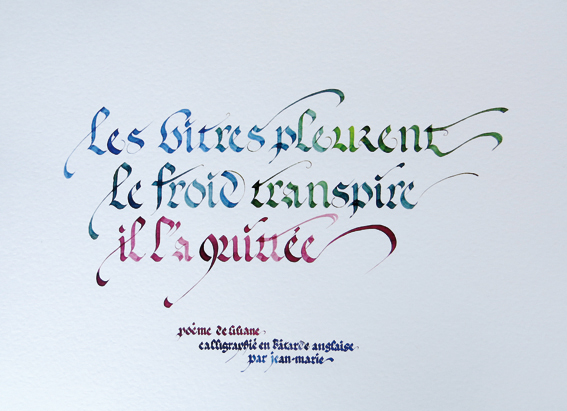 les vitres pleurent
le froid transpire
il l'a quittée
poème de liliane.
calligraphié en bâtarde anglaise.
par jean-marie